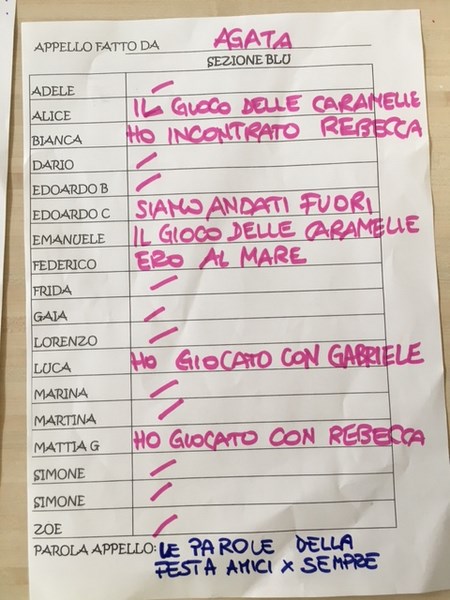 APPELLO FATTO DA AGATA
SEZIONE BLU
ADELE
ALICE IL GIOCO DELLE CARAMELLE
BIANCA HO INCONTRATO REBECCA
DARIO
EDOARDO B
EDOARDO C SIAMO ANDATI FUORI
EMANUELE IL GIOCO DELLE CARAMELLE
FEDERICO ERO AL MARE
FRIDA
GAIA
LORENZO
LUCA HO GIOCATO CON GABRIELE
MARINA
MARTINA
MATTIA G HO GIOCATO CON REBECCA
SIMONE
SIMONE
ZOE
PAROLA APPELLO: LE PAROLE DELLA
FESTA AMICI x SEMPRE